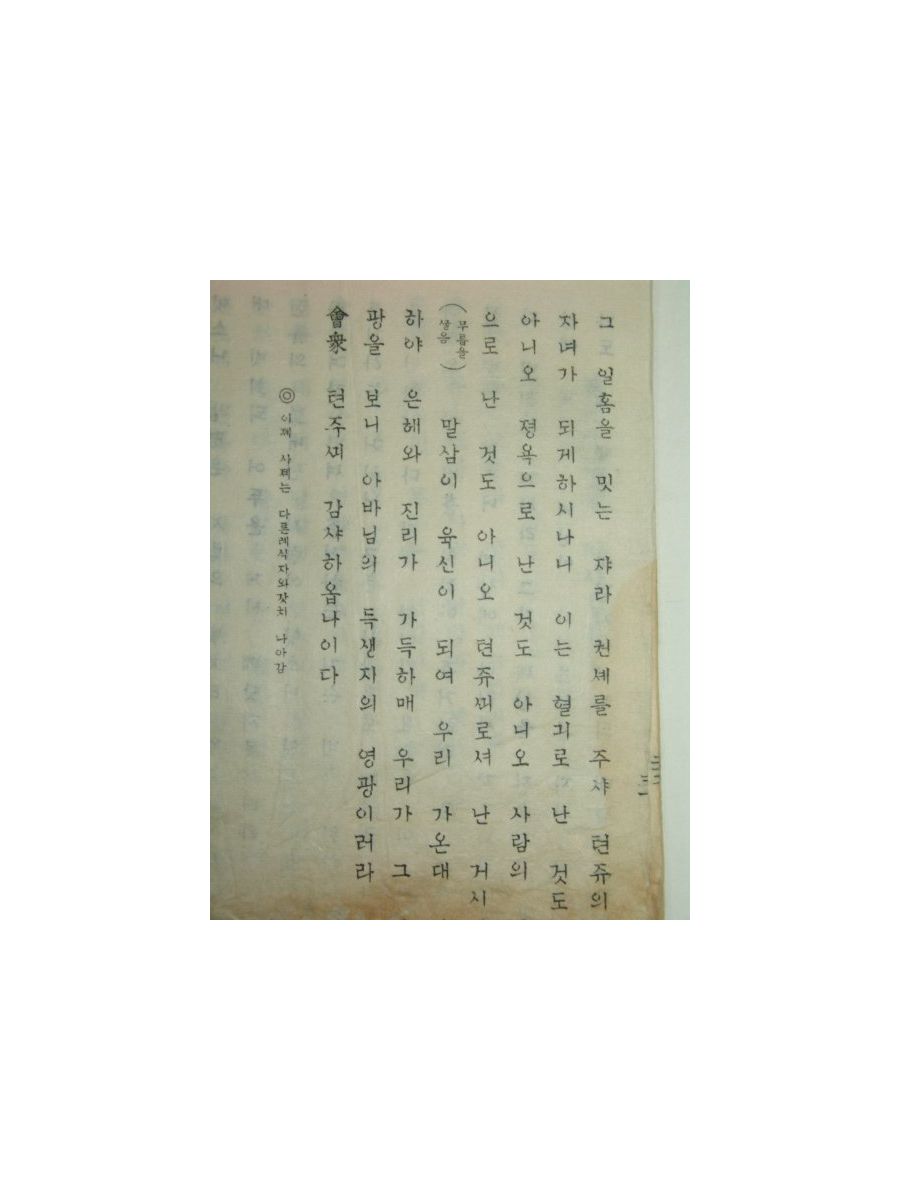 그 일홈을 밋는 쟈라 권셰를 주샤 텬쥬의
자녀가 되게하시나니 이는 혈긔로 난 것도
아니오 졍욕으로 난 것도 아니오 사람의
으로 난 것도 아니오 텬쥬끠로셔 난 거시
(무릅을 꿀음) 말삼이 육신이 되여 우리 가온대
하야 은혜와 진리가 가득하매 우리가 그
광을 보니 아바님의 득생자의 영광이러라
會衆 텬주끠 감샤하옵나이다
◎ 이제 사졔는 다른례식자와갓치 나아감